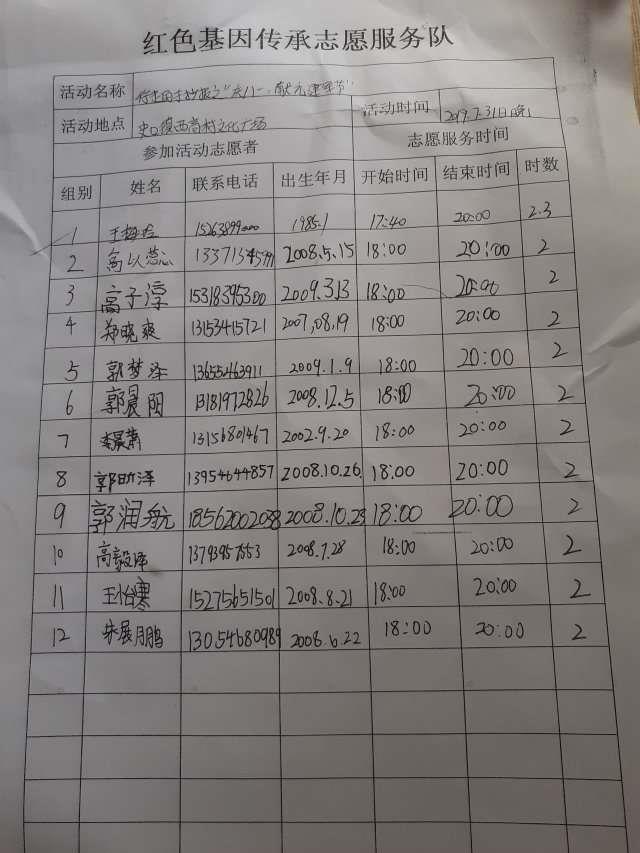 红色基因传承志愿服务队
活动名称 传承因手抄报之"庆八一,献礼建军节" 活动时间 2019.7.31日晚
活动地点 史口镇西商村文化广场 志愿服务时间
参加活动志愿者
组别 姓名 联系电话 出生年月 开始时间 结束时间 时数
1 王 15263899000 1985.1 17:40 20:00 2.3
2 高以蕊 2008.5.15 18:00 20:00 2
3 高子淳 15318395300 2009.3.13 18:00 20:00 2
4 郑晓爽 13153415721 2007,08,19 18:00 20:00 2
5 郭梦泽 13655463911 2009.1.9 18:00 20:00 2
6 郭晨阳 13181972826 2008.12.5 18:00 20:00 2
7 13156801467 2002.9.20 18:00 20:00 2
8 郭昀泽 13954644857 2008.10.26 18:00 20:00 2
9 郭润航 18562002088 2008.10.23 18:00 20:00 2
10 高毅泽 2008.7.28 18:00 20:00 2
11 王怡寒 15275651501 2008.8.21 18:00 20:00 2
12 朱展鹏 13054680989 2008.6.22 18:00 20:00 2